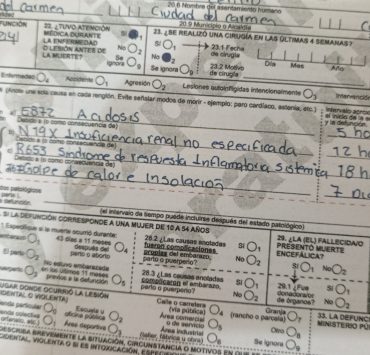 del carmen
20.8 Nombre del asentamiento humano
Ciudad del carmen
20.9 Municipio o Alcaldía
FUNCIÓN
22. ¿TUVO ATENCIÓN MÉDICA DURANTE LA ENFERMEDAD O LESIÓN ANTES DE LA MUERTE?
Sí
No 2
Se ignora 9
23. ¿SE REALIZÓ UNA CIRUGÍA EN LAS ÚLTIMAS 4 SEMANAS?
Sí 1
No
Se ignora 9
23.1 Fecha de cirugía
Día Mes Año
23.2 Motivo de cirugía
Enfermedad Accidente Agresión 2 Lesiones autoinfligidas intencionalmente 3 Intervención
(Anote una sola causa en cada renglón. Evite señalar modos de morir - ejemplo: paro cardíaco, astenia, etc.)
E872 Acidosis
Debido a (o como consecuencia de)
N19X Insuficiencia renal no especificada 12 h
Debido a (o como consecuencia de)
R653 Sindrome de respuesta Inflamatoria Sistemica 18 h
Debido a (o como consecuencia de)
Golpe de calor e Insolación
(el intervalo de tiempo puede incluirse después del estado patológico)
SI LA DEFUNCIÓN CORRESPONDE A UNA MUJER DE 10 A 54 AÑOS
Especifique si la muerte ocurrió durante:
43 días a 11 meses después del parto o aborto 4
El parto 2
No estuvo embarazada en los últimos 11 meses previos a la defunción 5
28.2 ¿Las causas anotadas fueron complicaciones propias del embarazo, parto o puerperio?
Sí 1
No 2
28.3 ¿Las causas anotadas complicaron el embarazo, parto o puerperio?
Sí 1
No 2
29. ¿LA (EL) FALLECIDA/O PRESENTÓ MUERTE ENCEFÁLICA?
Sí 1 No 2
29.1 ¿Fue donadora/or de órganos?
Sí 1
No 2
LUGAR DONDE OCURRIÓ LA LESIÓN
Escuela u oficina pública 2
Área deportiva 3
Calle o carretera (vía pública) 4
Área comercial o de servicio 5
Área industrial (taller, fábrica u obra) 6
Granja (rancho o parcela) 7
Otro 8
Se ignora 9
33. LA DEFUNC
MINISTERIO PÚ
DESCRIBA BREVEMENTE LA SITUACIÓN, CIRCUNSTANCIA O MOTIVOS EN QUE